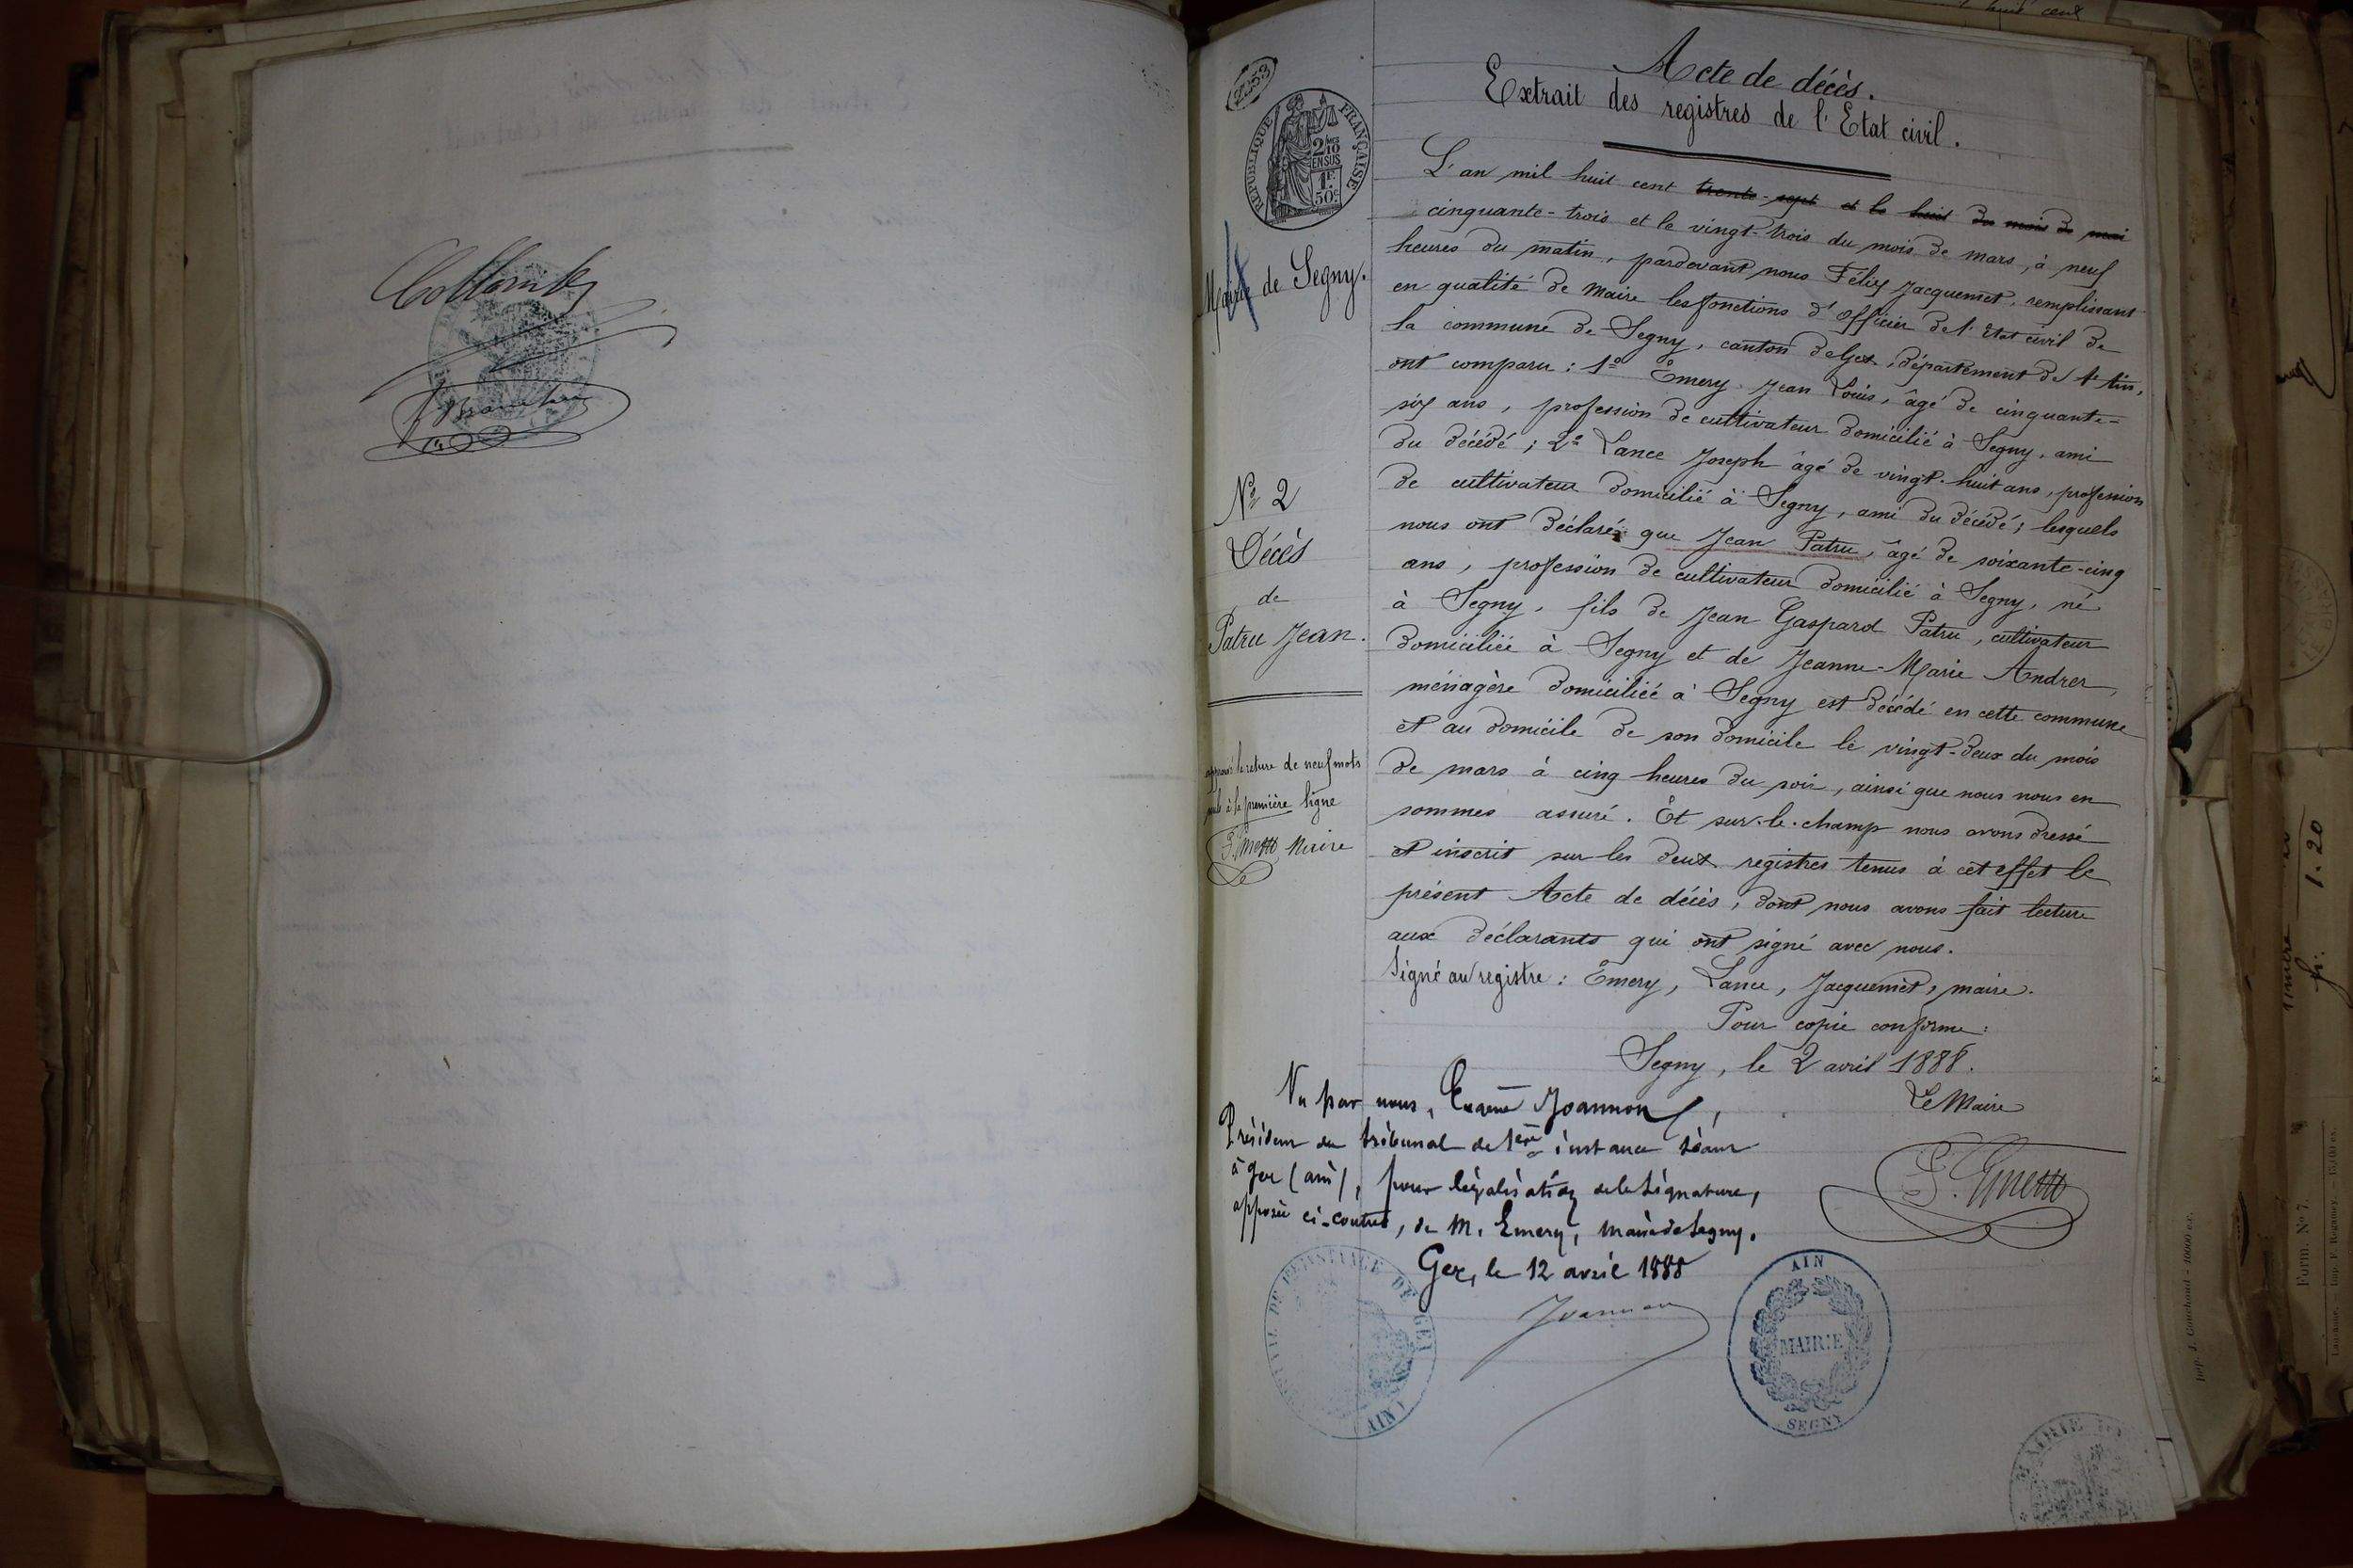 Acte de décès.
Extrait des registres de l'Etat civil.
REPUBLIQUE FRANÇAISE
2/10
EN SUS
1F.
50c
L'an mil huit cent trente-sept et le huit du mois de mai
cinquante-trois et le vingt-trois du mois de mars, à neuf
heures du matin, pardevant nous Félix Jacquemet, remplissant
en qualité de Maire les fonctions d'Officier de l'Etat civil de
la commune de Segny, canton de Gex, département de l'Ain,
ont comparu : 1º Emery Jean Louis, âgé de cinquante-
six ans, profession de cultivateur domicilié à Segny, ami
du décédé ; 2º Lance Joseph âgé de vingt-huit ans, profession
de cultivateur domicilié à Segny, ami du décédé ; lesquels
nous ont déclaré que Jean Patru, âgé de soixante-cinq
ans, profession de cultivateur domicilié à Segny, né
à Segny, fils de Jean Gaspard Patru, cultivateur
domicilié à Segny et de Jeanne-Marie Andrer,
ménagère domiciliée à Segny est décédé en cette commune
et au domicile de son domicile le vingt-deux du mois
de mars à cinq heures du soir, ainsi que nous nous en
sommes assuré. Et sur-le-champ nous avons dressé
et inscrit sur les deux registres tenus à cet effet le
présent Acte de décès, dont nous avons fait lecture
aux déclarants qui ont signé avec nous.
Signé au registre : Emery, Lance, Jacquemet, maire.
Pour copie conforme :
Segny, le 2 avril 1888.
Le Maire
Mairie de Segny.
Nº 2
Décès
de
Patru Jean.
approuvé la rature de neuf mots
nuls à la première ligne
Maire
Vu par nous, Eugène Joannon,
Président du tribunal de 1ère instance séant
à Gex (ain), pour légalisation de la signature,
apposée ci-contre, de M. Emery, maire de Segny.
Gex, le 12 avril 1888
Joannon
DE GEX
(AIN)
AIN
MAIRIE
SEGNY
MAIRIE
1.20
Form. Nº 7.